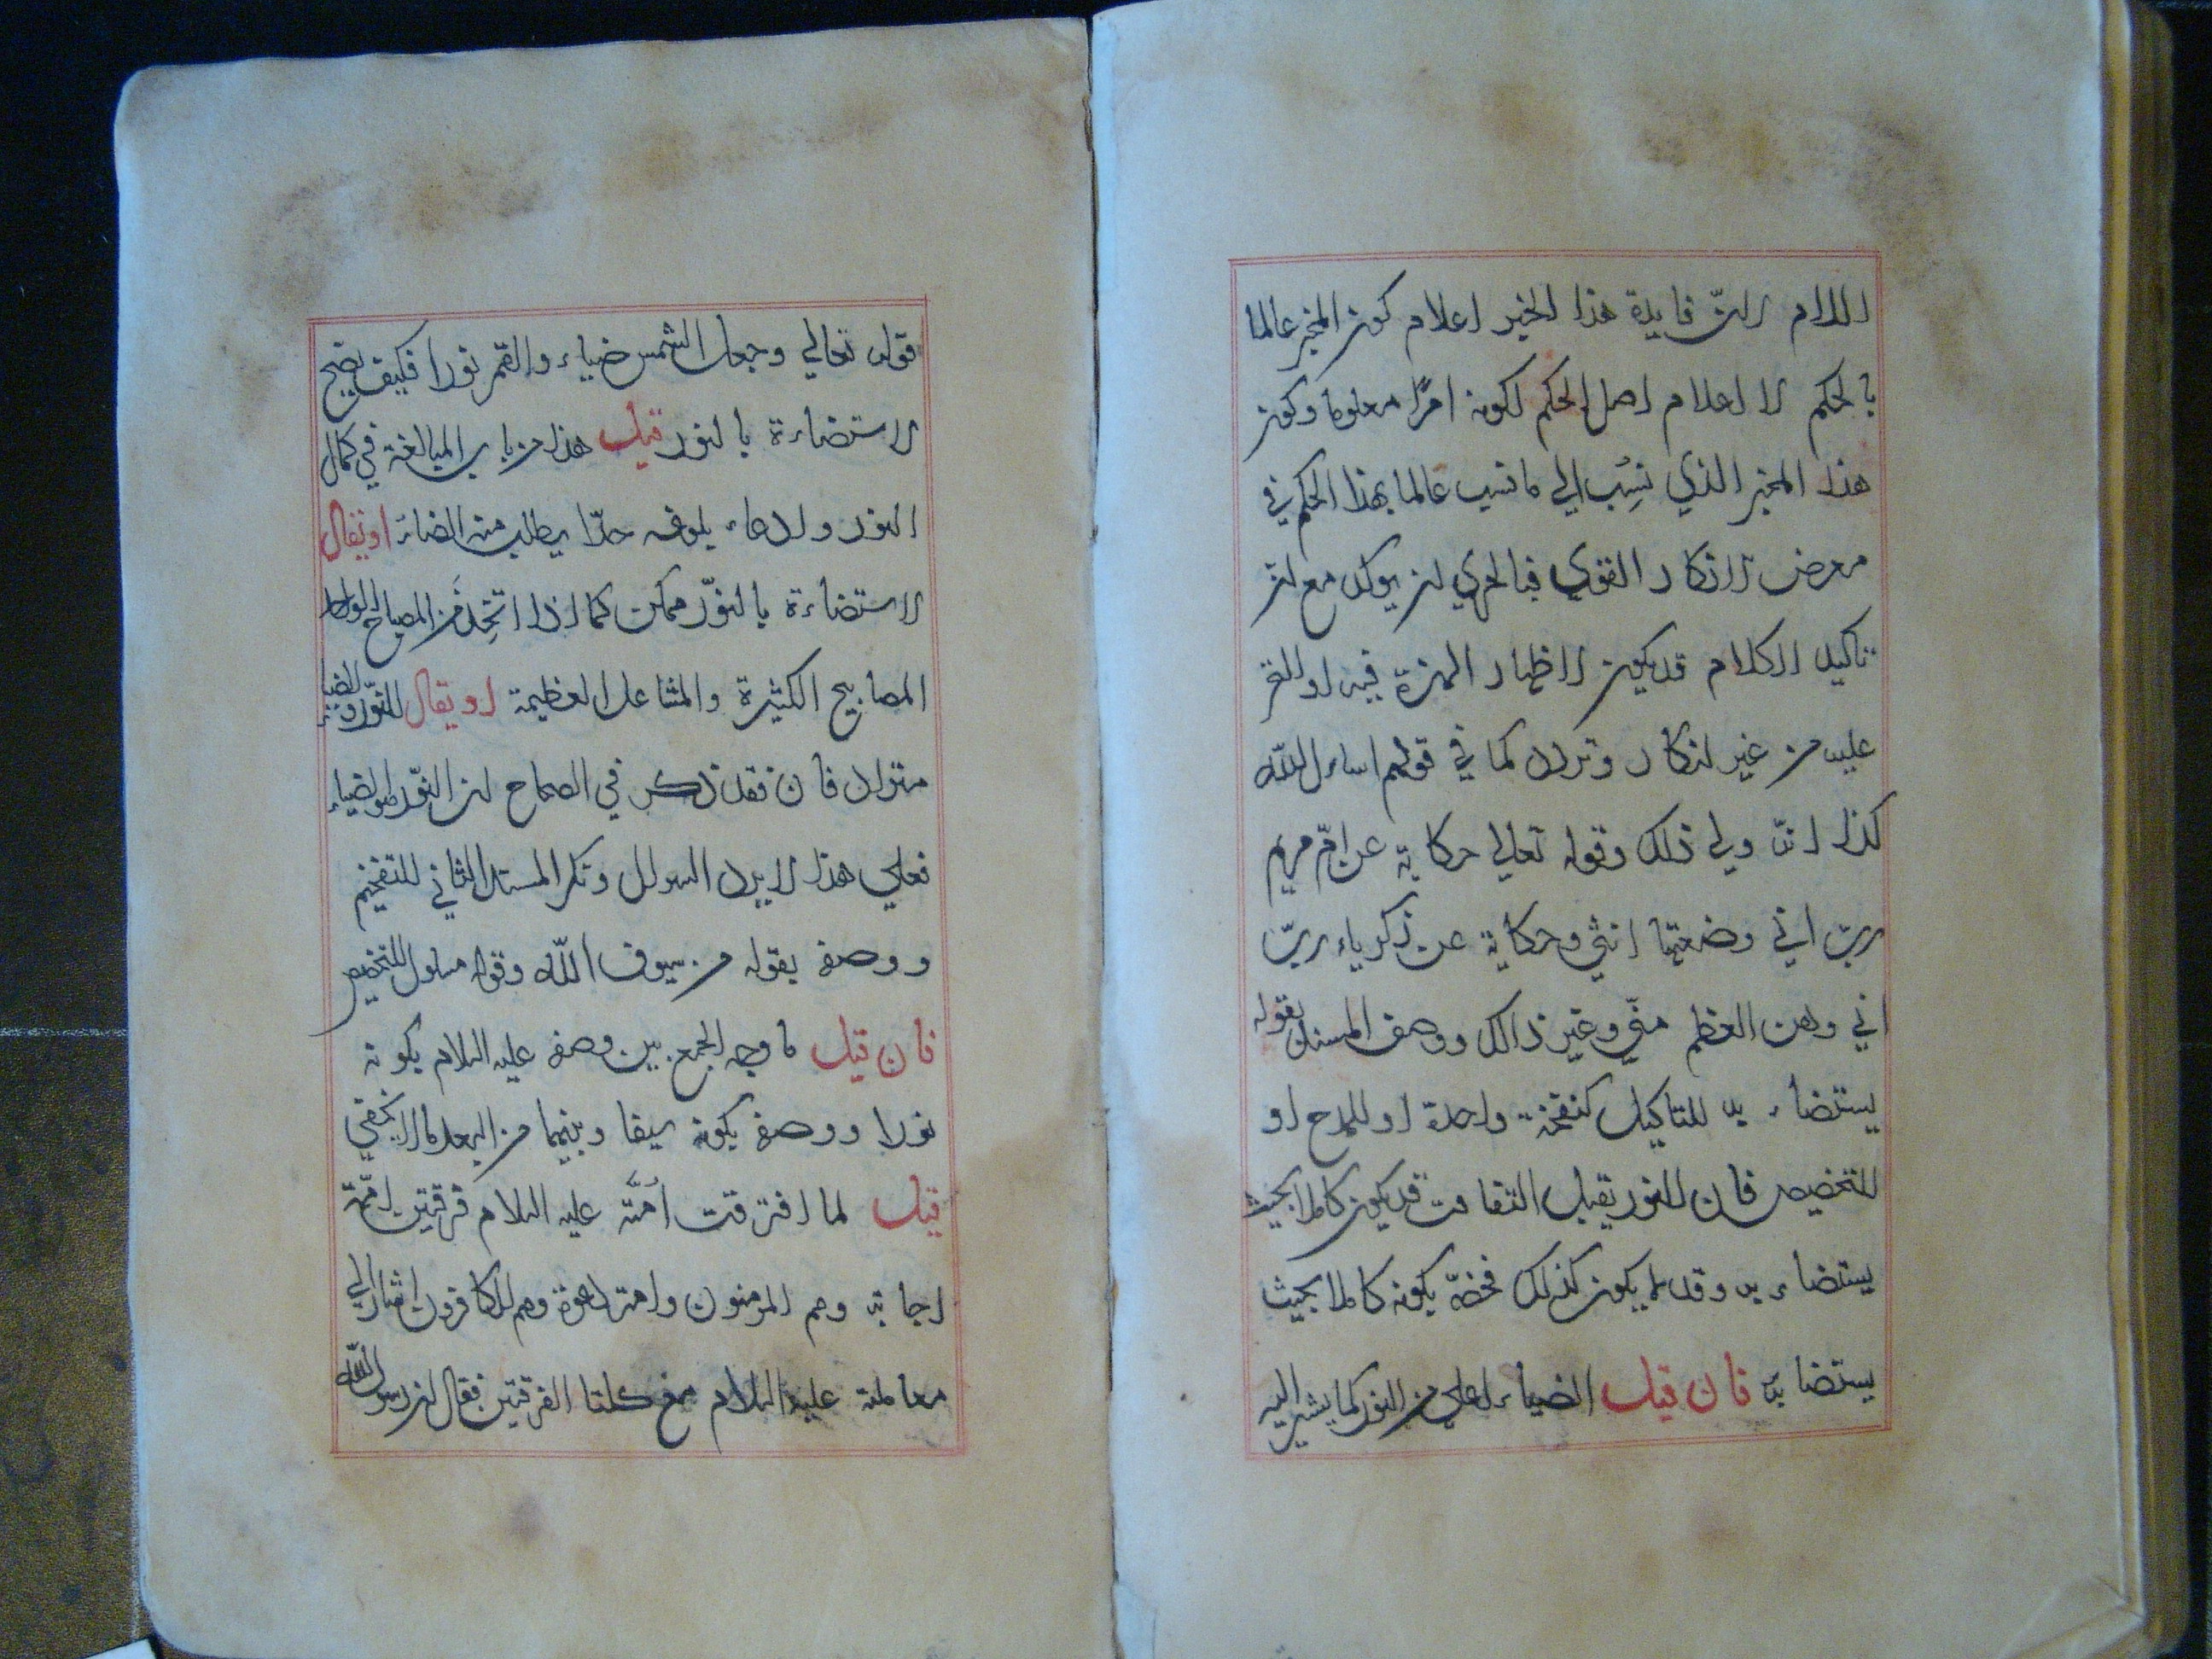 السلام لانّ فايدة هذا الخبر اعلام كون المخبر عالما
بالحكم لا اعلام اصل الحكم لكونه امرًا معلوما وكون
هذا المخبر الذي نسِب الي ما نسب عالما بهذا الحكم في
معرض الانكار القوي فبالحري ان يوكد مع ان
تاكيد الكلام قد يكون لاظهار المسرة فيه او للتحسر
عليه من غير انكار وتردد كما في قولهم اساء الله
كذا انّ ولي ذلك وقوله تعالي حكاية عن امّ مريم
ربّ اني وضعتها انثي وحكاية عن زكرياء ربّ
اني وهن العظم منّي وغير ذالك ووصف المسند بقوله
يستضاء به للتاكيد كنفخة واحدة او للمدح او
للتخصيص فان النور يقبل التفاوت قد يكون كاملا بحيث
يستضاء به وقد لا يكون كذلك فخصّه بكونه كاملا بحيث
يستضا به فان قيل الضياء اعلي من النور كما يشير اليه
قوله تعالي وجعل الشمس ضياء والقمر نورا فكيف يصح
الاستضاءة بالنور قيل هذا من باب المبالغة في كمال
النور وادعاء بلوغه حدّا يطلب منه الضاء او يقال
الاستضاءة بالنوّر ممكن كما اذا اتّخِذ من المصباح الواحد
المصابيح الكثيرة والمشاعل العظيمة او يقال النّور والضياء
مترادفان فقد ذكر في الصحاح ان النوّر هو الضياء
فعلي هذا لا يرد السوال ونكر المسند الثاني للتفخيم
ووصفه بقوله من سيوف الله وقوله مسلول للتخصيص
فان قيل ما وجه الجمع بين وصفه عليه السلام بكونه
نورا ووصفه بكونه سيفا وبينهما من البعد ما لا يخفي
قيل لما افترقت اُمَّته عليه السلام فرقتين امّة
اجابة وهم المومنون وامة دعوة وهم الكافرون اشار الي
معاملته عليه السلام مع كلتا الفرقتين فقال ان رسول الله